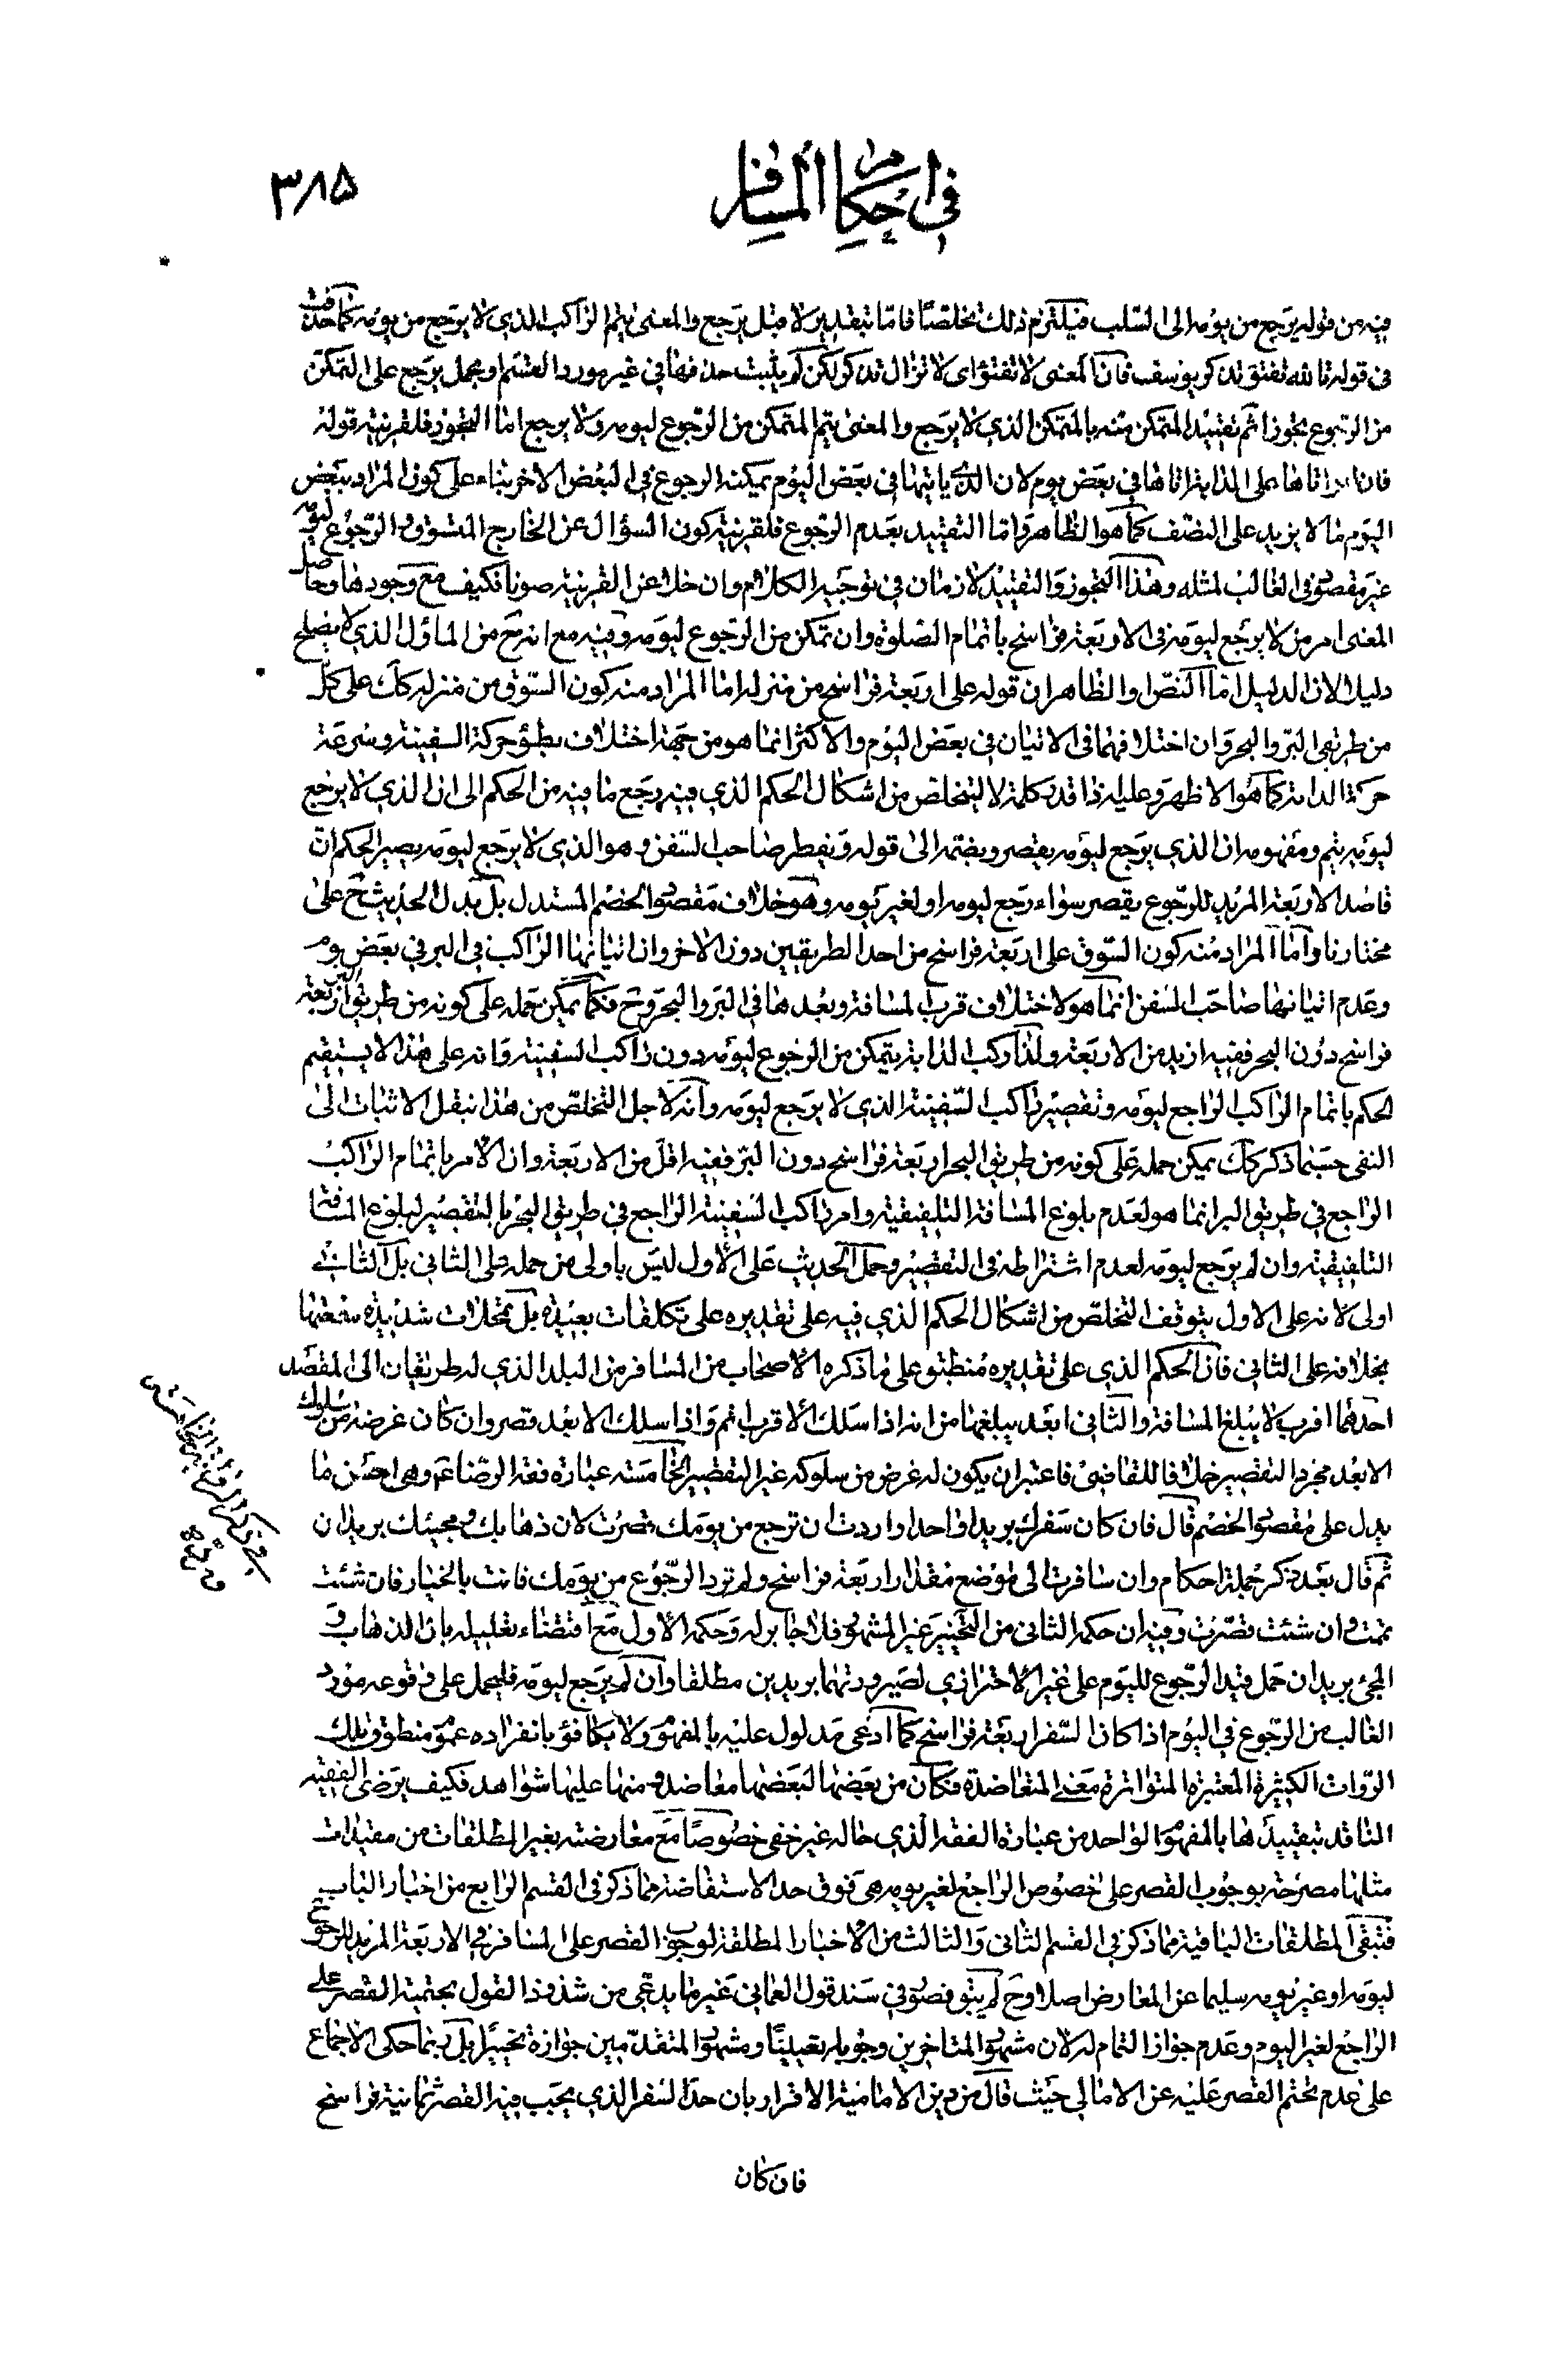 في احكام المسافر
٣٨٥
فيه من قوله يرجع من يومه الى السلب فيلتزم ذلك تخلصًا فامّا بتقدير لا قبل يرجع والمعنى يتم الراكب الذي لا يرجع من يومه كما حذفت
في قوله تا لله تفتؤ تذكر يوسف فان المعنى لا تفتؤ اى لا تزال تذكر لكن لم يثبت حذفها في غير مورد القسم او بحمل يرجع على التمكن
من الرجوع تجوزا ثم تقييد المتمكن منه بالمتمكن الذي لا يرجع والمعنى يتم المتمكن من الرجوع ليومه ولا يرجع اما التجوز فلقرينة قوله
فان اتاها على الدابة اتاها في بعض يوم لان الذي ياتيها في بعض اليوم يمكنه الرجوع في البعض الاخر بناء على كون المراد ببعض
اليوم ما لا يزيد على النصف كما هو الظاهر واما التقييد بعدم الرجوع فلقرينة كون السؤال عن الخارج المتسوق والرجوع ليومه
غير مقصود في الغالب لمثله وهذا التجوز والتقييد لازمان في توجيه الكلام وان خلا عن القرينة صونا فكيف مع وجودها وحاصل
المعنى امر من لا يرجع ليومه في الاربعة فراسخ باتمام الصلوة وان تمكن من الرجوع ليومه وفيه مع انه ح من الماؤل الذي لا يصلح
دليلا لان الدليل اما النص او الظاهر ان قوله على اربعة فراسخ من منزله اما المراد منه كون السوق من منزله كك على كل
من طريقي البر والبحر وان اختلافهما في الاتيان في بعض اليوم والاكثر انما هو من جهة اختلاف بطؤ حركة السفينة وسرعة
حركة الدابة كما هو الاظهر وعليه اذا قدر كلمة لا لتخلص من اشكال الحكم الذي فيه رجع ما فيه من الحكم الى ان الذي لا يرجع
ليومه يتم ومفهومه ان الذي يرجع ليومه يقصر وبضمه الى قوله ويفطر صاحب السفن وهو الذي لا يرجع ليومه يصير الحكم ان
قاصد الاربعة المريد للرجوع يقصر سواء رجع ليومه او لغير يومه وهو خلاف مقصود الخصم المستدل بل يدل الحديث ح على
مختارنا واما المراد منه كون السوق على اربعة فراسخ من احد الطريقين دون الاخر وان اتيانها الراكب في البر في بعض يوم
وعدم اتيانها صاحب السفن انما هو لاختلاف قرب المسافة وبعدها في البر والبحر وح فكما يمكن حمله على كونه من طريق البر اربعة
فراسخ دون البحر ففيه ازيد من الاربعة ولذا راكب الدابة يتمكن من الرجوع ليومه دون راكب السفينة وانه على هذا لا يستقيم
الحكم باتمام الراكب الراجع ليومه وتقصير راكب السفينة الذي لا يرجع ليومه وانه لاجل التخلص من هذا نبقل الاثبات الى
النفى حسبما ذكر كك يمكن حمله على كونه من طريق البحر اربعة فراسخ دون البر ففيه اقل من الاربعة وان الامر باتمام الراكب
الراجع في طريق البر انما هو لعدم بلوغ المسافة التلفيقية وامر راكب السفينة الراجع في طريق البحر بالتقصير لبلوغ المسافة
التلفيقية وان لم يرجع ليومه لعدم اشتراطه في التقصير وحمل الحديث على الاول ليس باولى من حمله على الثاني بل الثاني
اولى لانه على الاول يتوقف التخلص من اشكال الحكم الذي فيه على تقديره على تكلفات بعيدة بل تمحلات شديدة سمعتها
بخلافه على الثاني فان الحكم الذي على تقديره منطبق على ما ذكره الاصحاب من المسافر من البلد الذي له طريقان الى المقصد
احدهما اقرب لا يبلغ المسافة والثاني ابعد يبلغها من انه اذا سلك الاقرب اتم واذا سلك الابعد قصر وان كان غرضه من سلوك
الابعد مجرد التقصير خلافا للقاضي فاعتبر ان يكون له غرض من سلوكه غير التقصير الخامسة عبارة فقه الرضا ع وهي احسن ما
يدل على مقصود الخصم قال فان كان سفرك بريدا واحدا واردت ان ترجع من يومك قصرت لان ذهابك ومجيئك بريدان
ثم قال بعد ذكر جملة احكام وان سافرت الى موضع مقدار اربعة فراسخ ولم ترد الرجوع من يومك فانت بالخيار فان شئت
تممت وان شئت قصرت وفيه ان حكمه الثاني من التخيير غير المشهور فلا جابر له وحكمه الاول مع اقتضاء تعليله بان الذهاب و
المجئ بريدان حمل قيد الرجوع لليوم على غير الاحترازي لصيرورتهما بريدين مطلقا وان لم يرجع ليومه فليحمل على وقوعه مورد
الغالب من الرجوع في اليوم اذا كان السفر اربعة فراسخ كما ادعى مدلول عليه بالمفهوم ولا يكافؤ بانفراده عموم منطوق تلك
الروات الكثيرة المعتبرة المتواترة معنى المتعاضدة فكان من بعضها لبعضها معاضد ومنها عليها شواهد فكيف يرضى الفقيه
الناقد بتقييدها بالمفهوم الواحد من عبارة الفقه الذي حاله غير خفى خصوصًا مع معارضته بغير المطلقات من مقيدات
مثلها مصرحة بوجوب القصر على خصوص الراجع لغير يومه هى فوق حد الاستفاضة مما ذكر في القسم الرابع من اخبار الباب
فتبقى المطلقات الباقية مما ذكر في القسم الثاني والثالث من الاخبار المطلقة لوجوب القصر على المسافر في الاربعة المريد للرجوع
ليومه او غير يومه سليما عن المعارض اصلا وح لم يبق قصور في سند قول العماني غير ما يدعى من شذوذ القول بحتمية القصر على
الراجع لغير اليوم وعدم جواز التمام له لان مشهور المتاخرين وجوبا له تعيينًا ومشهور المتقدمين جوازه تخييرا بل ربما حكى الاجماع
على عدم تحتم القصر عليه عن الامالي حيث قال من دين الامامية الاقرار بان حد السفر الذي يجب فيه القصر ثمانية فراسخ
فان كان